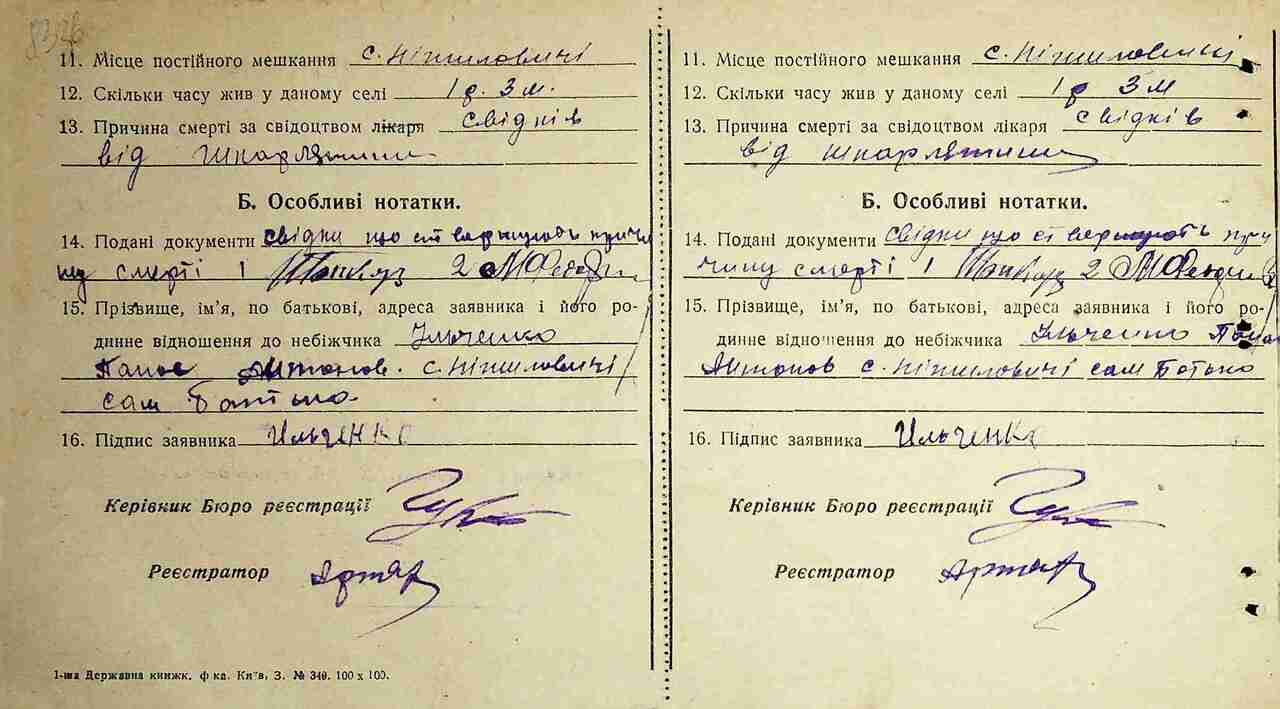 11. Місце постійного мешкання с. Нїжиловичі
12. Скільки часу жив у даному селі 1 р. 3 м.
13. Причина смерті за свідоцтвом лікаря свідків
від шкарлятини
Б. Особливі нотатки.
14. Подані документи свідки що ствержують причи
ну смерті 1 2
15. Прізвище, ім'я, по батькові, адреса заявника і його ро-
динне відношення до небіжчика Ільченко
Панас Антонов. с. Нїжиловичі
сам батько
16. Підпис заявника Ильченко
Керівник Бюро реєстрації
Реєстратор
1-ша Державна книжк. ф-ка. Київ, З. № 340. 100 х 100.
11. Місце постійного мешкання с. Нїжиловичі
12. Скільки часу жив у даному селі 1 р 3 м
13. Причина смерті за свідоцтвом лікаря свідків
від шкарлятини
Б. Особливі нотатки.
14. Подані документи свідки що ствержують при
чину смерті 1 2
15. Прізвище, ім'я, по батькові, адреса заявника і його ро-
динне відношення до небіжчика Ільченко Панас
Антонов с. Нїжиловичі сам батько
16. Підпис заявника Ильченко
Керівник Бюро реєстрації
Реєстратор